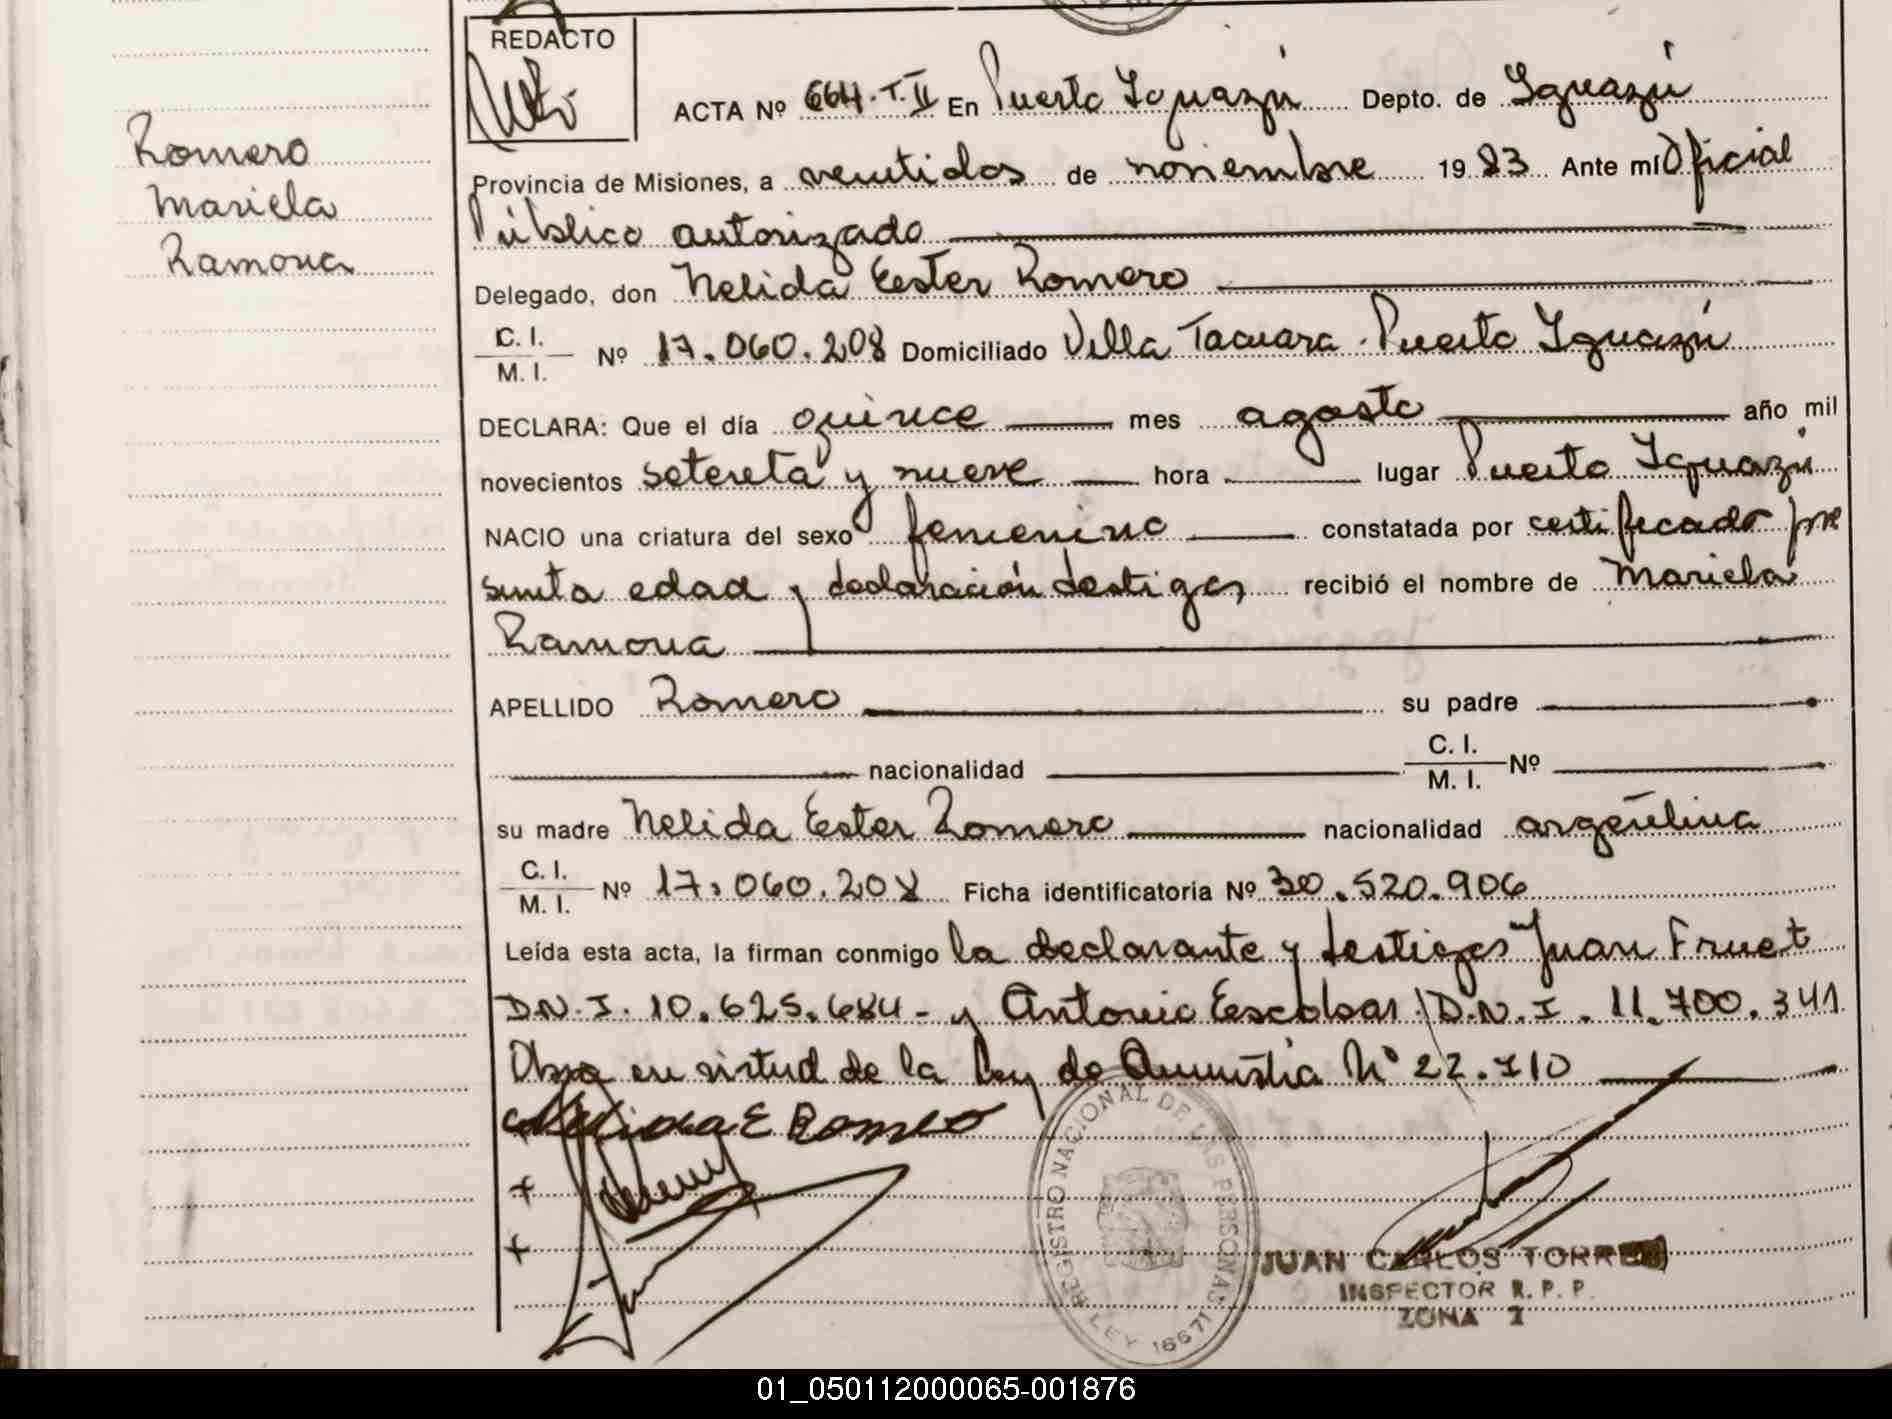 REDACTO
Romero
Mariela
Ramona
ACTA Nº 664.T.II En Puerto Iguazú Depto. de Iguazú
Provincia de Misiones, a veintidos de noviembre 1983 Ante mí Oficial
Público autorizado
Delegado, don Nelida Ester Romero
C. I.
M. I. Nº 17.060.208 Domiciliado Villa Tacuara. Puerto Iguazú
DECLARA: Que el día quince mes agosto año mil
novecientos setenta y nueve hora lugar Puerto Iguazú
NACIO una criatura del sexo femenino constatada por certificado pre
sunta edad y declaración testigos recibió el nombre de Mariela
Ramona
APELLIDO Romero su padre
nacionalidad C. I.
M. I. Nº
su madre Nelida Ester Romero nacionalidad argentina
C. I.
M. I. Nº 17.060.208 Ficha identificatoria Nº 30.520.906
Leída esta acta, la firman conmigo la declarante y testigos Juan Fruet
D.N.I. 10.625.684- y Antonio Escobar. D.N.I. 11.700.341
Obra en virtud de la Ley de Amnistia Nº 22.710
Nelida E Romero
REGISTRO NACIONAL DE LAS PERSONAS
LEY 16671
JUAN CARLOS TORRES
INSPECTOR R. P. P.
ZONA 2
01_050112000065-001876